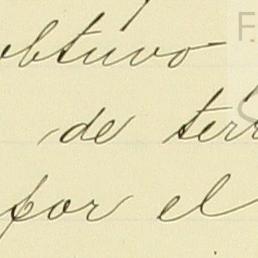 obtuvo
de terr
por el